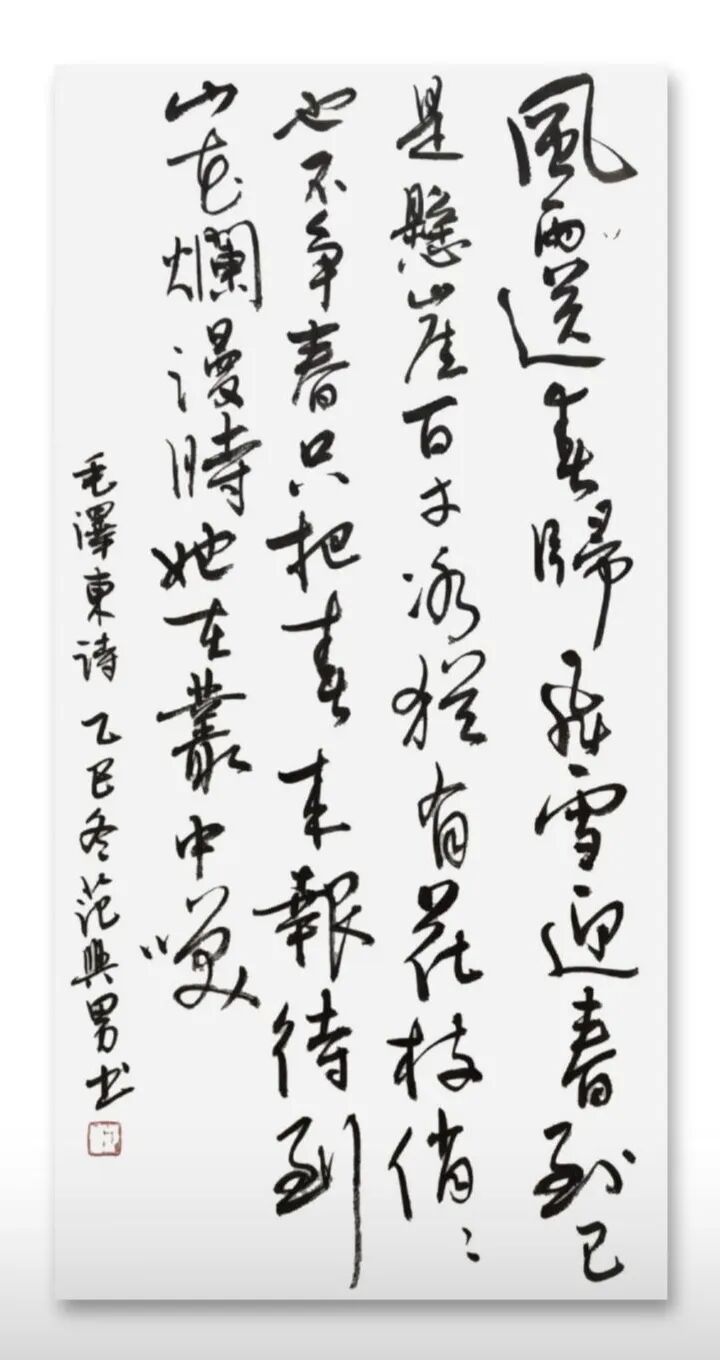 風雨送春歸飛雪迎春到已
是懸崖百丈冰猶有花枝俏〻
也不争春只把春来報待到
山花爛漫時她在叢中笑
毛澤東诗乙巳冬范興男书